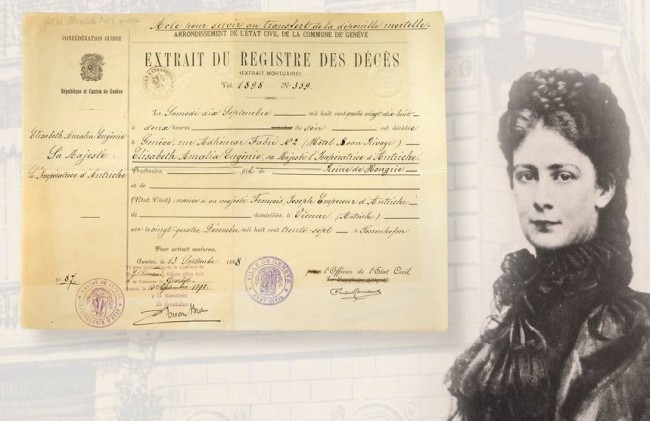 Acte pour servir au transfert de la dépouille mortelle.
ARRONDISSEMENT DE L'ÉTAT CIVIL DE LA COMMUNE DE GENÈVE
CONFÉDÉRATION SUISSE
EXTRAIT DU REGISTRE DES DÉCÈS
(EXTRAIT MORTUAIRE)
République et Canton de Genève
Vol. 1898 No. 559.
Le Samedi dix Septembre mil huit cent quatre vingt dix huit
à deux heures du soir est décédée
à Genève, rue Adhémar Fabri No 2 (Hôtel Beau Rivage)
Elisabeth Amalia Eugénie, sa Majesté l'Impératrice d'Autriche
Elisabeth Amalia Eugénie
Sa Majesté
l'Impératrice d'Autriche
Profession Reine de Hongrie
et de
(État Civil) mariée à sa majesté François Joseph Empereur d'Autriche
domiciliée à Vienne (Autriche)
née le vingt quatre Décembre mil huit cent trente sept à Possenhofen
Pour extrait conforme,
Genève, 13 Septembre 1898
No 87
L'Officier de l'État Civil
VILLE DE GENÈVE
ÉTAT CIVIL